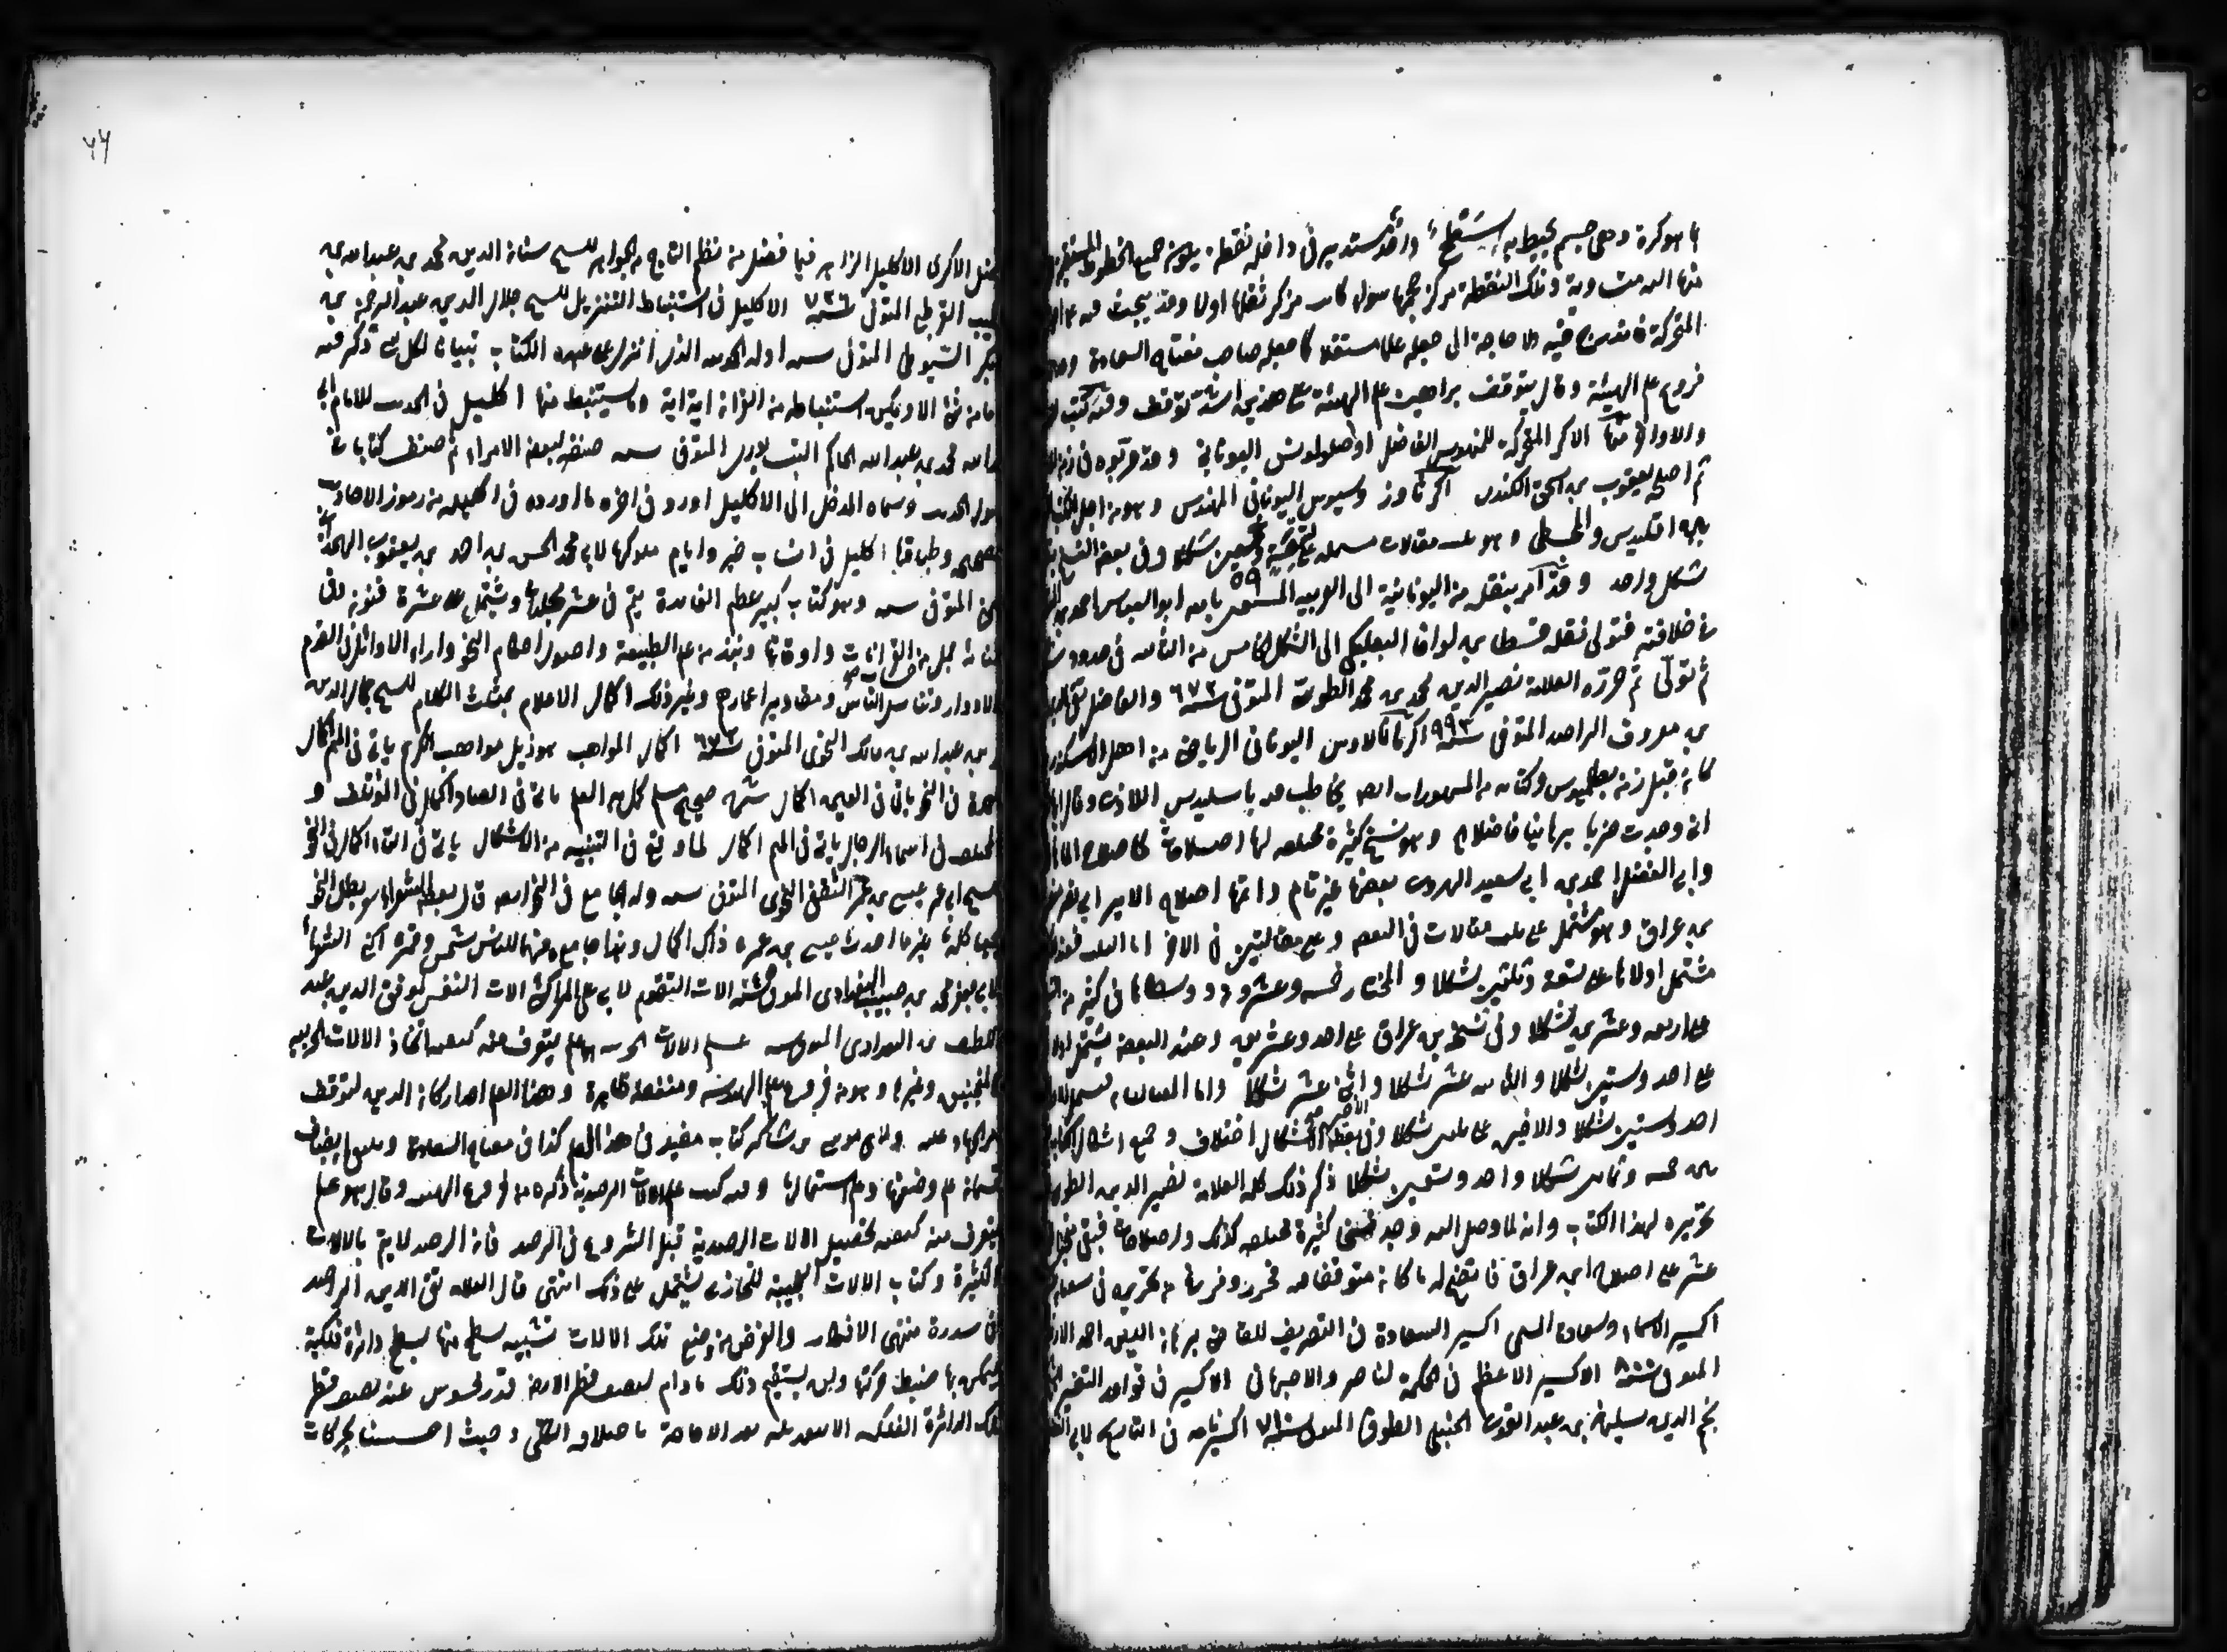 ما هو كرة وهى جسم يحيط به سطح واحد مستدير فى داخله نقطة يكون جميع الخطوط المستقيمة
منها اليه متساوية وتلك النقطة مركز حجمها سواء كانت مركز ثقلها اولا وقد يبحث فيه عن
المتحركة فاندرج فيه ولا حاجة الى جعله علما مستقلا كما جعله صاحب مفتاح السعادة
فروع علم الهيئة وقال يتوقف براهين علم الهيئة على هذين اشد توقف وفيه كتب
والاواخر منها الاكر المتحركة للمهندس الفاضل اوطولوقس اليونانى وقد عربوه فى زمن
ثم اصلحه يعقوب بن اسحق الكندى اكر ثاوذوسيوس اليونانى المهندس وهو من اجل الكتب
بين اقليدس والمجسطى وهو ثلث مقالات مشتملة على تسعة وخمسين شكلا وفى بعض النسخ
٥٩
شكل واحد وقد امر بنقله من اليونانية الى العربية المستعين بالله ابو العباس احمد بن
فى خلافته فتولى نقله قسطا بن لوقا البعلبكى الى الشكل الخامس من الثالثة فى حدود
ثم تولى ثم حرره العلامة نصير الدين محمد بن محمد الطوسى المتوفى سنة ٦٧٢ والفاضل تقى الدين
بن معروف الراصد المتوفى سنة ٩٩٣ اكر مانالاوس اليونانى الرياضى من اهل الاسكندرية
كان قبل زمن بطلميوس وكتابه من المشهورات ايضا يخاطب فيه باسيليدس اللاذى وقال
انى وجدت ضربا برهانيا فاضلا وهو نسخ كثيرة مختلفة لها اصلاحات كاصلاح الماهانى
وابى الفضل احمد بن ابى سعيد الهروى بعضها غير تام واتمها اصلاح الامير ابى نصر
بن عراق وهو مشتمل على ثلث مقالات فى البعض وعلى مقالتين فى الاخر اما الثلث
مشتمل اولاها على تسعة وثلثين شكلا و خمسة وعشرون فى كثير من
على اربعة وعشرين شكلا وفى نسخة بن عراق على احد وعشرين وعند البعض يشتمل اولاها
على احد وستين شكلا والثانية عشر شكلا واثنى عشر شكلا واما المقالتان
احد وستين شكلا والاخيرة على ثلثين شكلا وفى بعض الاشكال اختلاف وجميع اشكال الكتاب
بين خمسة وثمانين شكلا واحد وتسعين شكلا ذكر ذلك كله العلامة نصير الدين الطوسى
تحريره لهذا الكتاب وانه لما وصل اليه وجد نسخا كثيرة مختلفة كذلك واصلاحات فبقى
عشر على اصلاح ابن عراق فاتضح له ما كان متوقفا فيه فحرر وفرغ من تحريره فى شعبان
اكسير الاسماء وسعادة المسمى اكسير السعادة فى التصريف للقاضى برهان الدين احمد
المتوفى سنة ٨٠٠ الاكسير الاعظم فى الحكمة لناصر والاصبهانى الاكسير فى قواعد التفسير
نجم الدين سليمان بن عبد القوى الحنبلى الطوفى المتوفى سنة ٧١٠ اكسيرنامه فى التاريخ لابى
٧٧
الاكرى الاكليل الزاهر فيما فضل من نظم التاج من الجواهر للشيخ محمد بن عبد الله بن
لبيب القرطبى المتوفى سنة ٧٣٦ الاكليل فى استنباط التنزيل للشيخ جلال الدين عبد الرحمن بن
بكر السيوطى المتوفى سنة اوله الحمد لله الذى انزل على عبده الكتاب تبيانا لكل شئ ذكر فيه
ما من شئ الا ويمكن استنباطه من القرآن اية اية وما يستنبط منها اكليل فى الحديث للامام ابى
عبد الله محمد بن عبد الله الحاكم النيسابورى المتوفى سنة صنفه لبعض الامراء ثم صنف كتابا فى
اصول الحديث وسماه المدخل الى الاكليل اورد فى اخره ما اورده فى اكليله من رموز الاحاديث
الصحيحة وطبقاتها اكليل فى انساب حمير وايام ملوكها لابى محمد الحسن بن احمد بن يعقوب الهمدانى
المتوفى سنة وهو كتاب كبير عظيم الفائدة يتم فى عشر مجلدات ويشتمل على عشرة فنون وفى
جمل من القرانات واوقاتها ونبذ من علم الطبيعة واصول احكام النجوم واراء الاوائل فى القدم
الادوار وتناسل الناس ومقادير اعمارهم وغير ذلك اكمال الاعلام بمثلث الكلام للشيخ جمال الدين
بن عبد الله بن مالك النحوى المتوفى سنة ٦٧٢ اكمال المواهب هو ذيل مواهب الكريم ياتى فى الميم اكمال
العمدة فى النحو ياتى فى العين اكمال شرح صحيح مسلم ياتى فى الصاد اكمال فى المؤتلف و
المختلف فى اسماء الرجال ياتى فى الميم اكمال لما وقع فى التنبيه من الاشكال ياتى فى التاء اكمال فى النحو
للشيخ ابى عمر عيسى بن عمر الثقفى النحوى المتوفى سنة وله الجامع فى النحو ايضا قال بعض الشعراء بطل النحو
جميعا كله غير ما احدث عيسى بن عمر ذاك اكمال وهذا جامع وهما للناس شمس وقمر
لابى جعفر محمد بن حبيب البغدادى المتوفى سنة الات التقويم الات النفس لموفق الدين عبد
اللطيف بن البغدادى المتوفى سنة علم الالات الحربية هو علم يتعرف منه كيفية اتخاذ الالات الحربية
كالمنجنيق وغيرها وهو من فروع علم الهندسة ومنفعته ظاهرة وهذا العلم احد اركان الدين لتوقف
امر الجهاد عليه ولبنى موسى بن شاكر كتاب مفيد فى هذا العلم كذا فى مفتاح السعادة
علم وضعها وعلم استعمالها وفيه كتب علم الالات الرصدية ذكره من فروع الهيئة وقال هو علم
يتعرف منه كيفية تحصيل الالات الرصدية قبل الشروع فى الرصد فان الرصد لا يتم بالالات
الكثيرة وكتاب الالات العجيبة للخازنى يشتمل على ذلك انتهى قال العلامة تقى الدين الراصد
فى سدرة منتهى الافكار والغرض من وضع تلك الالات تشبيه سطح منها بسطح دائرة فلكية
ليمكن بها ضبط حركتها ولن يستقيم ذلك ما دام لنصف قطر الارض قدر محسوس عند نصف قطر
تلك الدائرة الفلكية الا بتعديله بعد الاحاطة باختلافه الكلى وحيث احسسنا بحركات